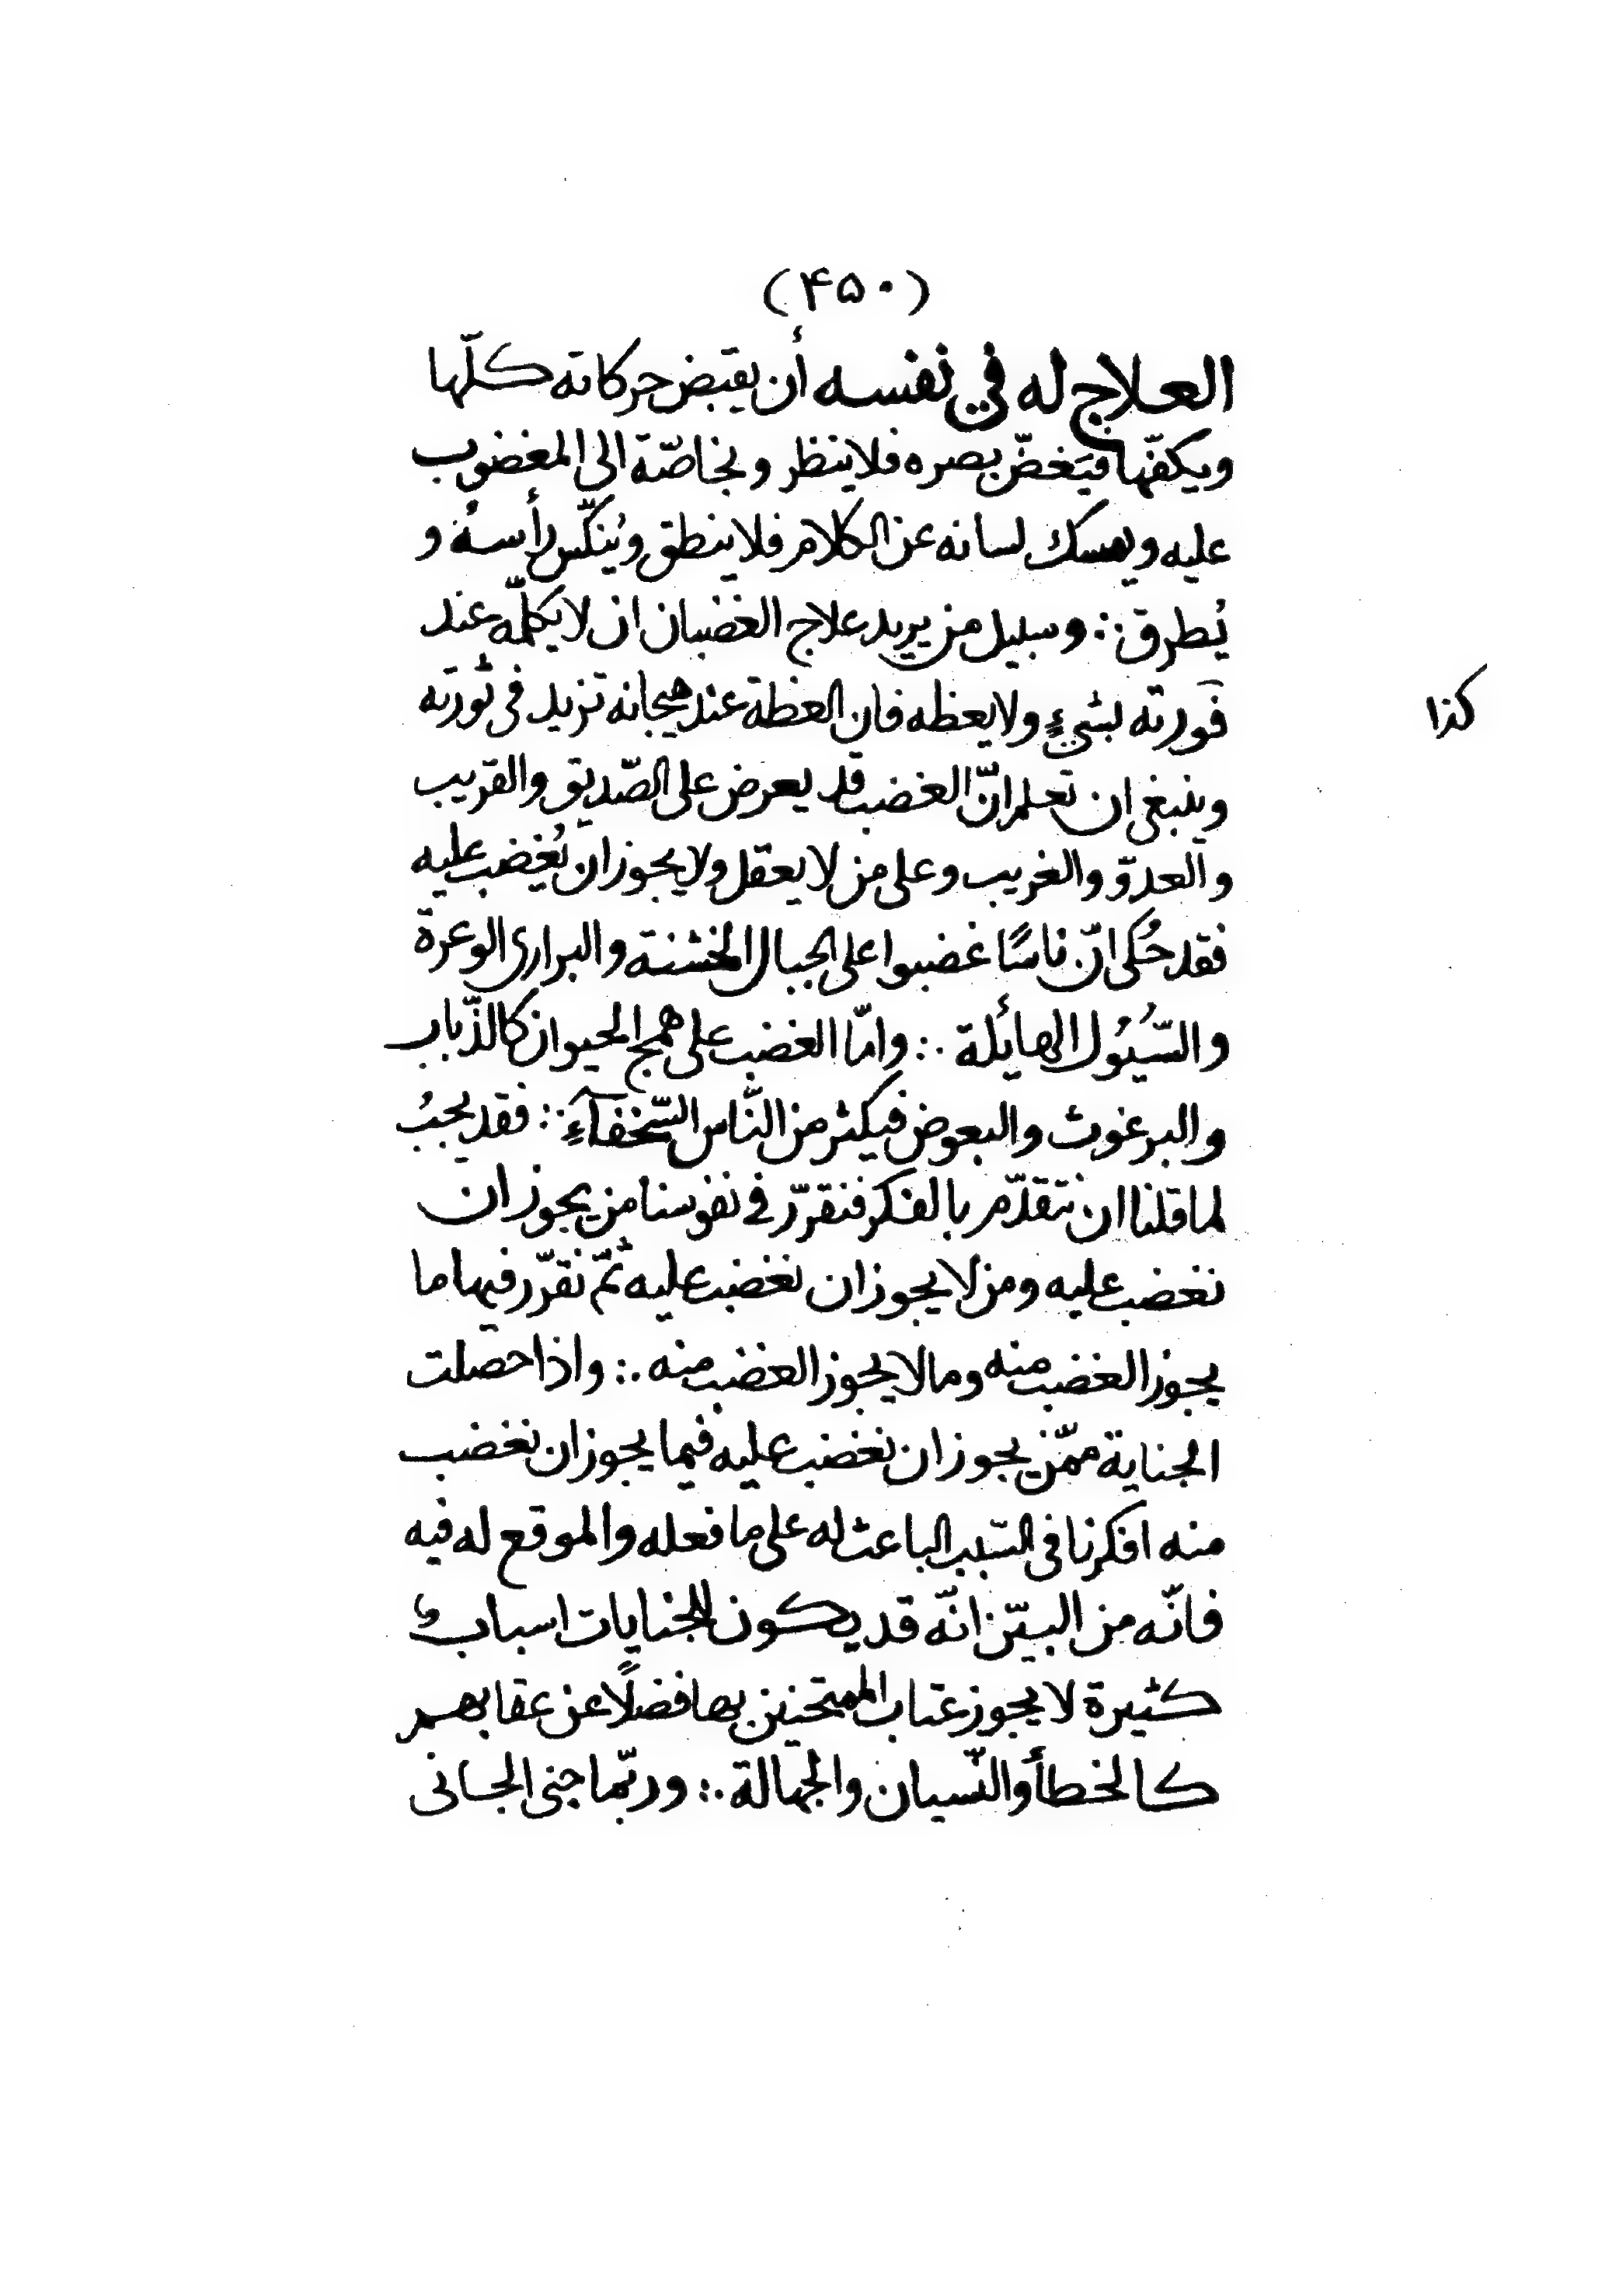 (۴۵۰)
العلاج له في نفسه أن يقبض حركاته كلّها
ويكفّها فيَغضّ بصره فلا ينظر وبخاصّة الى المغضوب
عليه ويمسك لسانه عن الكلام فلا ينطق ويُنكّس رأسهُ و
يُطرق ∴ وسبيل من يريد علاج الغضبان ان لا يكلّمه عند
فورته بشيءٍ ولا يعظه فان العظة عند هيجانه تزيد فى ثورته
كذا
وينبغى ان تعلم انّ الغضب قد يعرض على الصّديق والقريب
والعدوّ والغريب وعلى من لا يعقل ولا يجوز ان يُغضب عليه
فقد حُكى انّ ناسًا غضبوا على الجبال الخشنة والبرارى الوعرة
والسُّيُول الهائلة ∴ وامّا الغضب على همج الحيوان كالذّباب
والبرغوث والبعوض فيكثر من النّاس السّخفآءِ ∴ فقد يجبُ
لما قلنا ان نتقدّم بالفكر فنقرّر في نفوسنا من يجوز ان
نغضب عليه ومن لا يجوز ان نغضب عليه ثمّ نقرّر فيها ما
يجوز الغضب منه وما لا يجوز الغضب منه ∴ واذا حصلت
الجناية ممّن يجوز ان نغضب عليه فيما يجوز ان نغضب
منه افكرنا فى السّبب الباعث له على ما فعله والموقع له فيه
فانّه من البيّن انّه قد يكون للجنايات اسبابٌ
كثيرة لا يجوز عتاب الممتحنين بها فضلًا عن عقابهم
كالخطأ والنّسيان والجهالة ∴ وربّما جنى الجانى